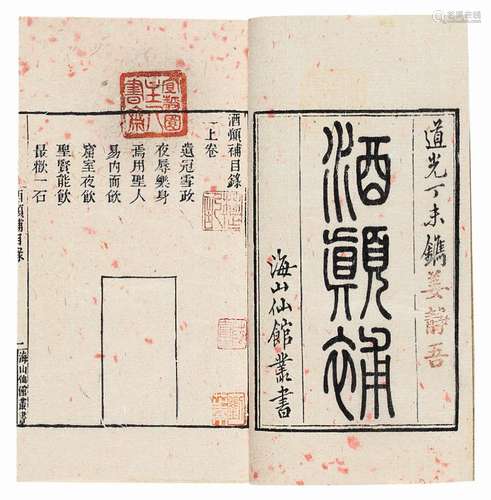 道光丁未鐫
酒顛補
海山仙館叢書
姜詩吾
酒顛補目錄
上卷
遺冠雪政
夜辱樂身
焉用聖人
易內而飲
窟室夜飲
聖賢能飲
最歡一石
酒顛補目錄
一
海山仙館叢書